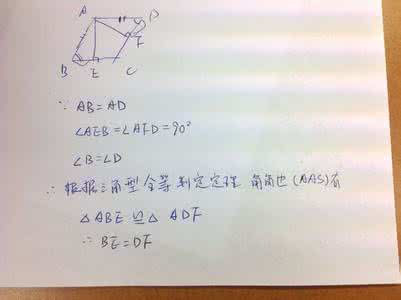 A D
F
B E C
∵ AB=AD
∠AEB=∠AFD=90°
∠B=∠D
∴ 根据三角型全等判定定理 角角边(AAS)有
△ABE≌△ADF
∴ BE=DF